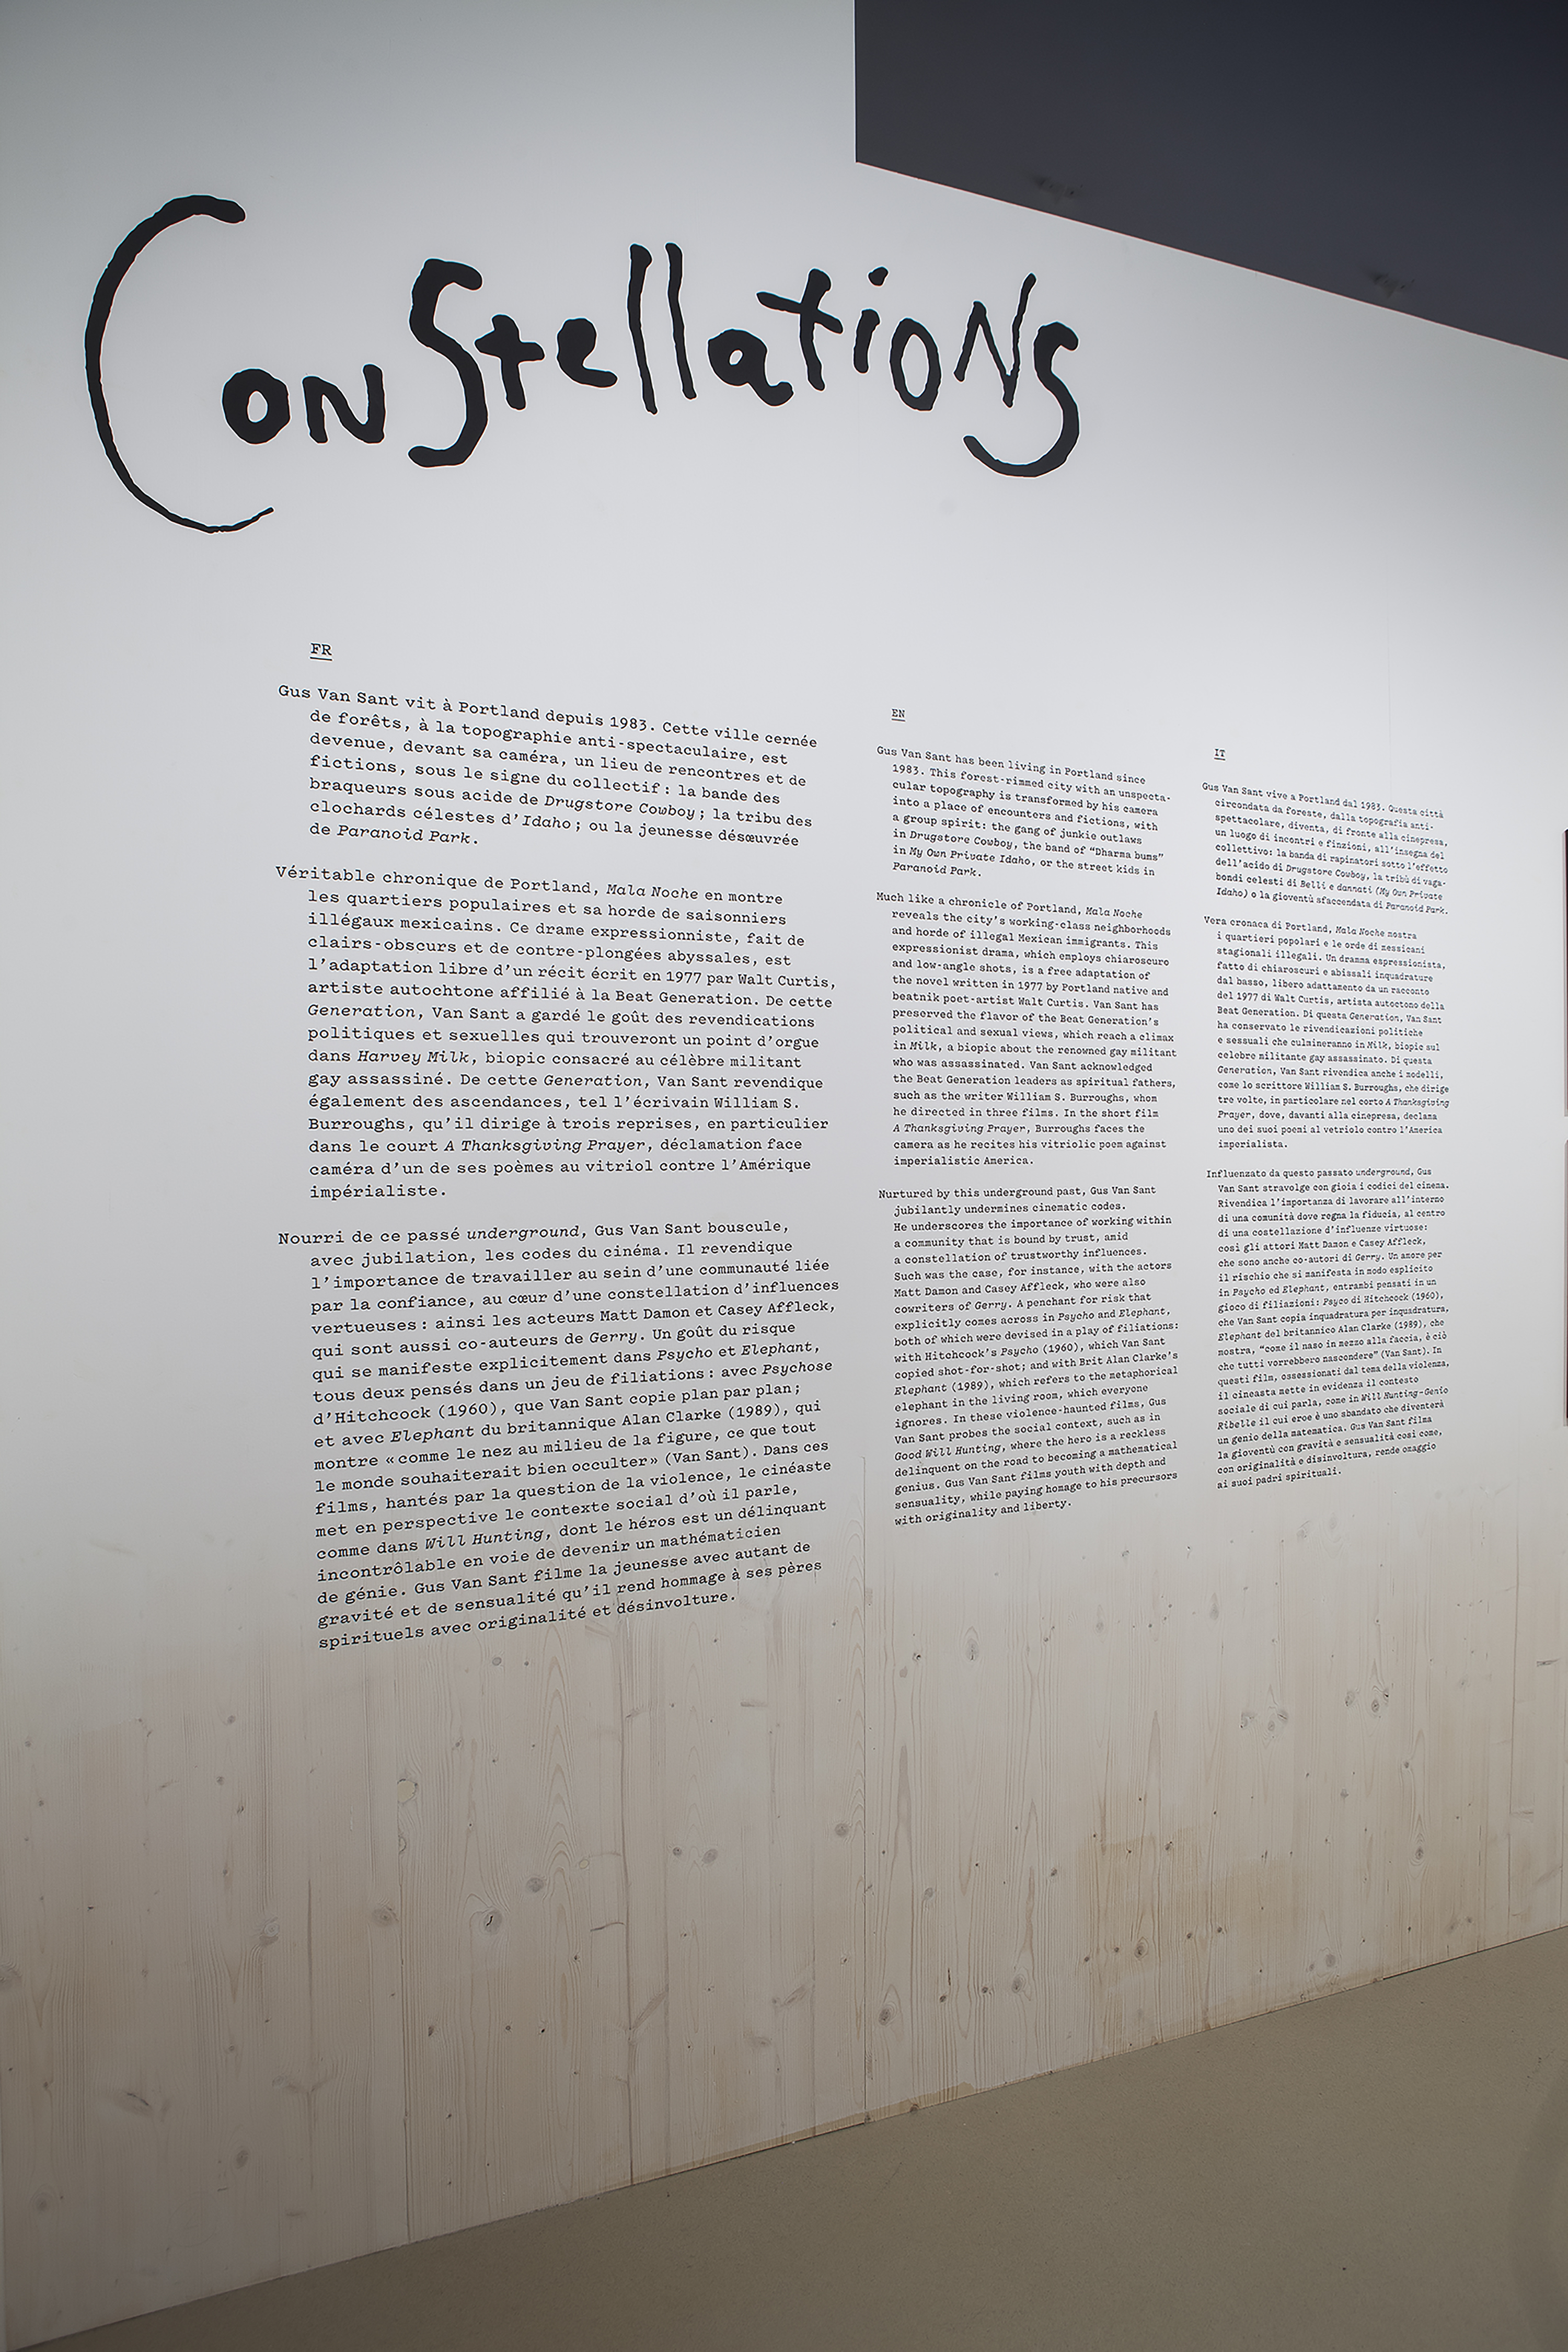 ConStellatioNS
FR
Gus Van Sant vit à Portland depuis 1983. Cette ville cernée
de forêts, à la topographie anti-spectaculaire, est
devenue, devant sa caméra, un lieu de rencontres et de
fictions, sous le signe du collectif : la bande des
braqueurs sous acide de Drugstore Cowboy ; la tribu des
clochards célestes d’Idaho ; ou la jeunesse désœuvrée
de Paranoid Park.
Véritable chronique de Portland, Mala Noche en montre
les quartiers populaires et sa horde de saisonniers
illégaux mexicains. Ce drame expressionniste, fait de
clairs-obscurs et de contre-plongées abyssales, est
l’adaptation libre d’un récit écrit en 1977 par Walt Curtis,
artiste autochtone affilié à la Beat Generation. De cette
Generation, Van Sant a gardé le goût des revendications
politiques et sexuelles qui trouveront un point d’orgue
dans Harvey Milk, biopic consacré au célèbre militant
gay assassiné. De cette Generation, Van Sant revendique
également des ascendances, tel l’écrivain William S.
Burroughs, qu’il dirige à trois reprises, en particulier
dans le court A Thanksgiving Prayer, déclamation face
caméra d’un de ses poèmes au vitriol contre l’Amérique
impérialiste.
Nourri de ce passé underground, Gus Van Sant bouscule,
avec jubilation, les codes du cinéma. Il revendique
l’importance de travailler au sein d’une communauté liée
par la confiance, au cœur d’une constellation d’influences
vertueuses : ainsi les acteurs Matt Damon et Casey Affleck,
qui sont aussi co-auteurs de Gerry. Un goût du risque
qui se manifeste explicitement dans Psycho et Elephant,
tous deux pensés dans un jeu de filiations : avec Psychose
d’Hitchcock (1960), que Van Sant copie plan par plan ;
et avec Elephant du britannique Alan Clarke (1989), qui
montre « comme le nez au milieu de la figure, ce que tout
le monde souhaiterait bien occulter » (Van Sant). Dans ces
films, hantés par la question de la violence, le cinéaste
met en perspective le contexte social d’où il parle,
comme dans Will Hunting, dont le héros est un délinquant
incontrôlable en voie de devenir un mathématicien
de génie. Gus Van Sant filme la jeunesse avec autant de
gravité et de sensualité qu’il rend hommage à ses pères
spirituels avec originalité et désinvolture.
EN
Gus Van Sant has been living in Portland since
1983. This forest-rimmed city with an unspecta-
cular topography is transformed by his camera
into a place of encounters and fictions, with
a group spirit: the gang of junkie outlaws
in Drugstore Cowboy, the band of “Dharma bums”
in My Own Private Idaho, or the street kids in
Paranoid Park.
Much like a chronicle of Portland, Mala Noche
reveals the city’s working-class neighborhoods
and horde of illegal Mexican immigrants. This
expressionist drama, which employs chiaroscuro
and low-angle shots, is a free adaptation of
the novel written in 1977 by Portland native and
beatnik poet-artist Walt Curtis. Van Sant has
preserved the flavor of the Beat Generation’s
political and sexual views, which reach a climax
in Milk, a biopic about the renowned gay militant
who was assassinated. Van Sant acknowledged
the Beat Generation leaders as spiritual fathers,
such as the writer William S. Burroughs, whom
he directed in three films. In the short film
A Thanksgiving Prayer, Burroughs faces the
camera as he recites his vitriolic poem against
imperialistic America.
Nurtured by this underground past, Gus Van Sant
jubilantly undermines cinematic codes.
He underscores the importance of working within
a community that is bound by trust, amid
a constellation of trustworthy influences.
Such was the case, for instance, with the actors
Matt Damon and Casey Affleck, who were also
cowriters of Gerry. A penchant for risk that
explicitly comes across in Psycho and Elephant,
both of which were devised in a play of filiations:
with Hitchcock’s Psycho (1960), which Van Sant
copied shot-for-shot; and with Brit Alan Clarke’s
Elephant (1989), which refers to the metaphorical
elephant in the living room, which everyone
ignores. In these violence-haunted films, Gus
Van Sant probes the social context, such as in
Good Will Hunting, where the hero is a reckless
delinquent on the road to becoming a mathematical
genius. Gus Van Sant films youth with depth and
sensuality, while paying homage to his precursors
with originality and liberty.
IT
Gus Van Sant vive a Portland dal 1983. Questa città
circondata da foreste, dalla topografia anti-
spettacolare, diventa, di fronte alla cinepresa,
un luogo di incontri e finzioni, all’insegna del
collettivo: la banda di rapinatori sotto l’effetto
dell’acido di Drugstore Cowboy, la tribù di vaga-
bondi celesti di Belli e dannati (My Own Private
Idaho) o la gioventù sfaccendata di Paranoid Park.
Vera cronaca di Portland, Mala Noche mostra
i quartieri popolari e le orde di messicani
stagionali illegali. Un dramma espressionista,
fatto di chiaroscuri e abissali inquadrature
dal basso, libero adattamento da un racconto
del 1977 di Walt Curtis, artista autoctono della
Beat Generation. Di questa Generation, Van Sant
ha conservato le rivendicazioni politiche
e sessuali che culmineranno in Milk, biopic sul
celebre militante gay assassinato. Di questa
Generation, Van Sant rivendica anche i modelli,
come lo scrittore William S. Burroughs, che dirige
tre volte, in particolare nel corto A Thanksgiving
Prayer, dove, davanti alla cinepresa, declama
uno dei suoi poemi al vetriolo contro l’America
imperialista.
Influenzato da questo passato underground, Gus
Van Sant stravolge con gioia i codici del cinema.
Rivendica l’importanza di lavorare all’interno
di una comunità dove regna la fiducia, al centro
di una costellazione d’influenze virtuose:
così gli attori Matt Damon e Casey Affleck,
che sono anche co-autori di Gerry. Un amore per
il rischio che si manifesta in modo esplicito
in Psycho ed Elephant, entrambi pensati in un
gioco di filiazioni: Psyco di Hitchcock (1960),
che Van Sant copia inquadratura per inquadratura,
Elephant del britannico Alan Clarke (1989), che
mostra, “come il naso in mezzo alla faccia, è ciò
che tutti vorrebbero nascondere” (Van Sant). In
questi film, ossessionati dal tema della violenza,
il cineasta mette in evidenza il contesto
sociale di cui parla, come in Will Hunting-Genio
Ribelle il cui eroe è uno sbandato che diventerà
un genio della matematica. Gus Van Sant filma
la gioventù con gravità e sensualità così come,
con originalità e disinvoltura, rende omaggio
ai suoi padri spirituali.